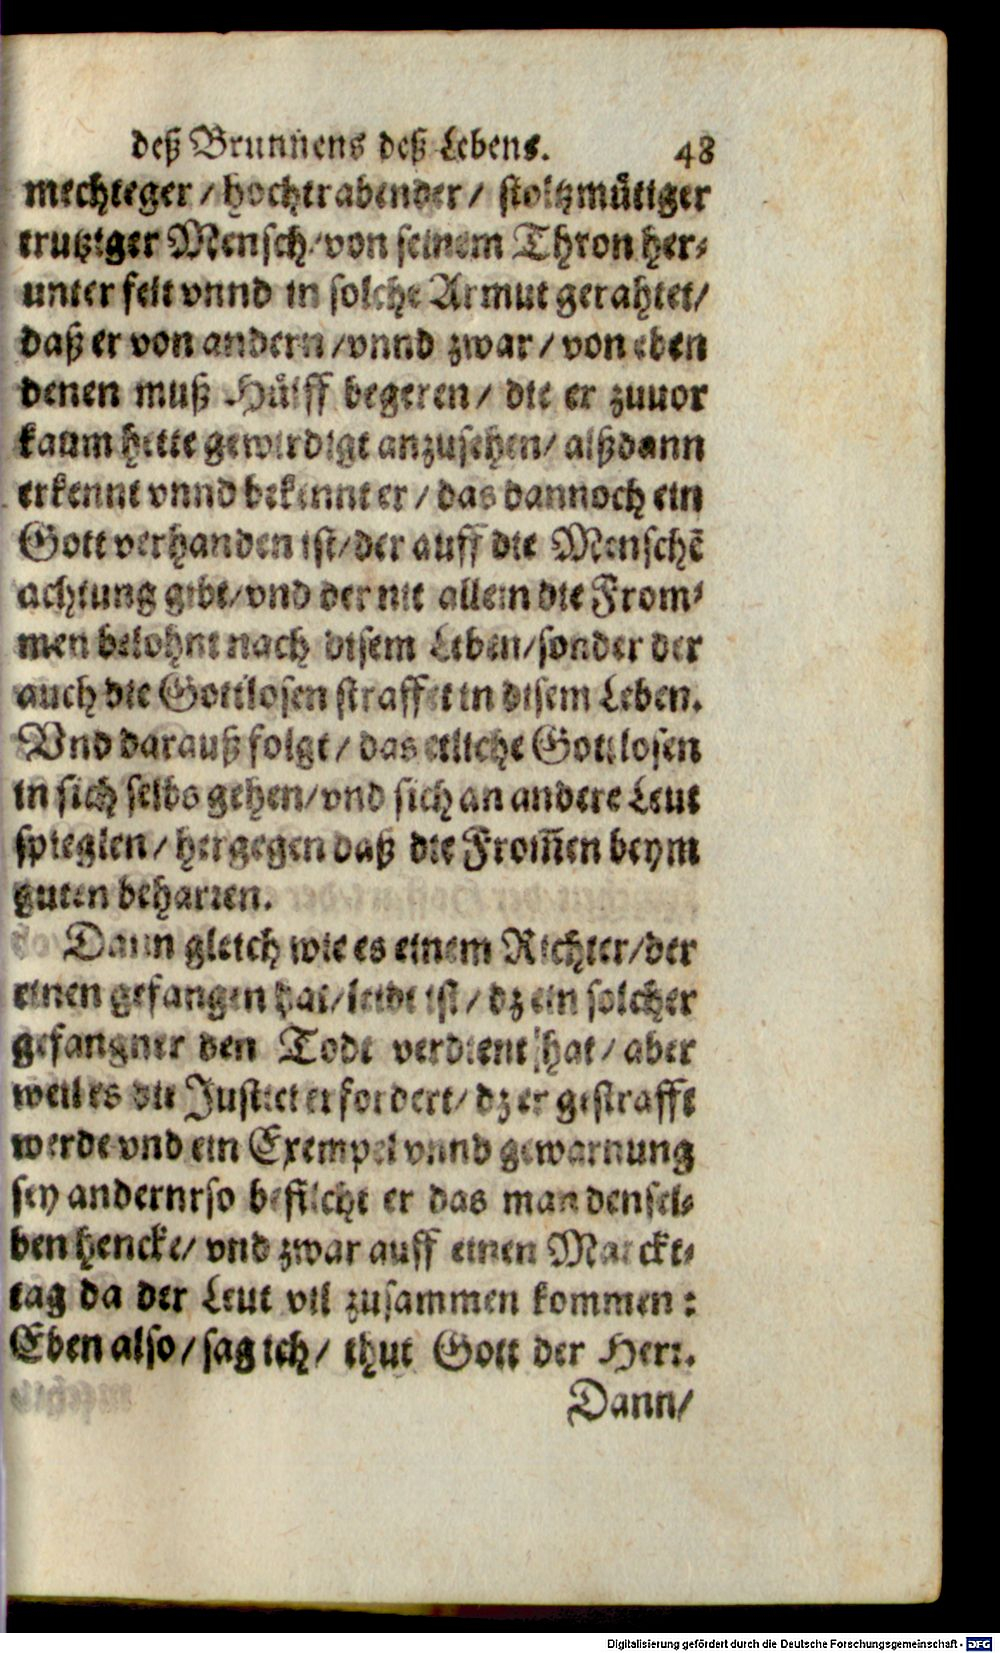 deß Brunnens deß Lebens. 48
mechteger / hochtrabender / stoltzmütiger
trutziger Mensch / von seinem Thron her-
unter felt vnnd in solche Armut gerahtet /
daß er von andern / vnnd zwar / von eben
denen muß Hülff begeren / die er zuuor
kaum hette gewirdigt anzusehen / alßdann
erkennt vnnd bekennt er / das dannoch ein
Gott verhanden ist / der auff die Menschē
achtung gibt / vnd der nit allein die From-
men belohnt nach disem Leben / sonder der
auch die Gottlosen straffet in disem Leben.
Vnd darauß folgt / das etliche Gottlosen
in sich selbs gehen / vnd sich an andere Leut
spieglen / hergegen daß die From̄en beym
guten beharren.
Dann gleich wie es einem Richter / der
einen gefangen hat / leidt ist / dz ein solcher
gefangner den Todt verdient hat / aber
weil es die Justict erfordert / dz er gestrafft
werde vnd ein Exempel vnnd gewarnung
sey andern so befilcht er das man densel-
ben hencke / vnd zwar auff einen Marckt-
tag da der Leut vil zusammen kommen :
Eben also / sag ich / thut Gott der Herr.
Dann /
Digitalisierung gefördert durch die Deutsche Forschungsgemeinschaft - DFG